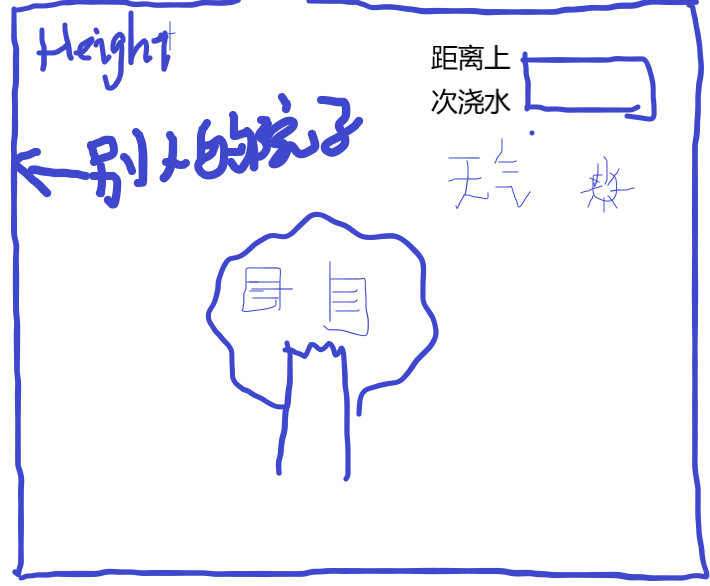 Height
距离上
次浇水
别人的院子
天气